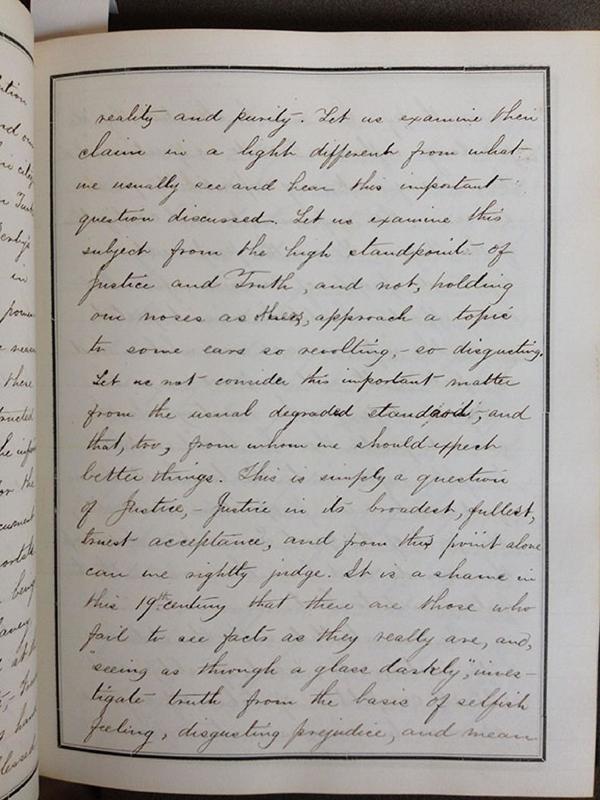 reality and purity. Let us examine their
claim in a light different from what
we usually see and hear this important
question discussed. Let us examine this
subject from the high standpoint of
Justice and Truth, and not, holding
our noses as others, approach a topic
to some ears so revolting, - so disgusting.
Let us not consider this important matter
from the usual degraded standard, and
that, too, from whom we should expect
better things. This is simply a question
of Justice, - Justice in its broadest, fullest,
truest acceptance, and from this point alone
can we rightly judge. It is a shame in
this 19th century that there are those who
fail to see facts as they really are, and,
"seeing as through a glass darkly", inves-
tigate truth from the basis of selfish
feeling, disgusting prejudice, and mean